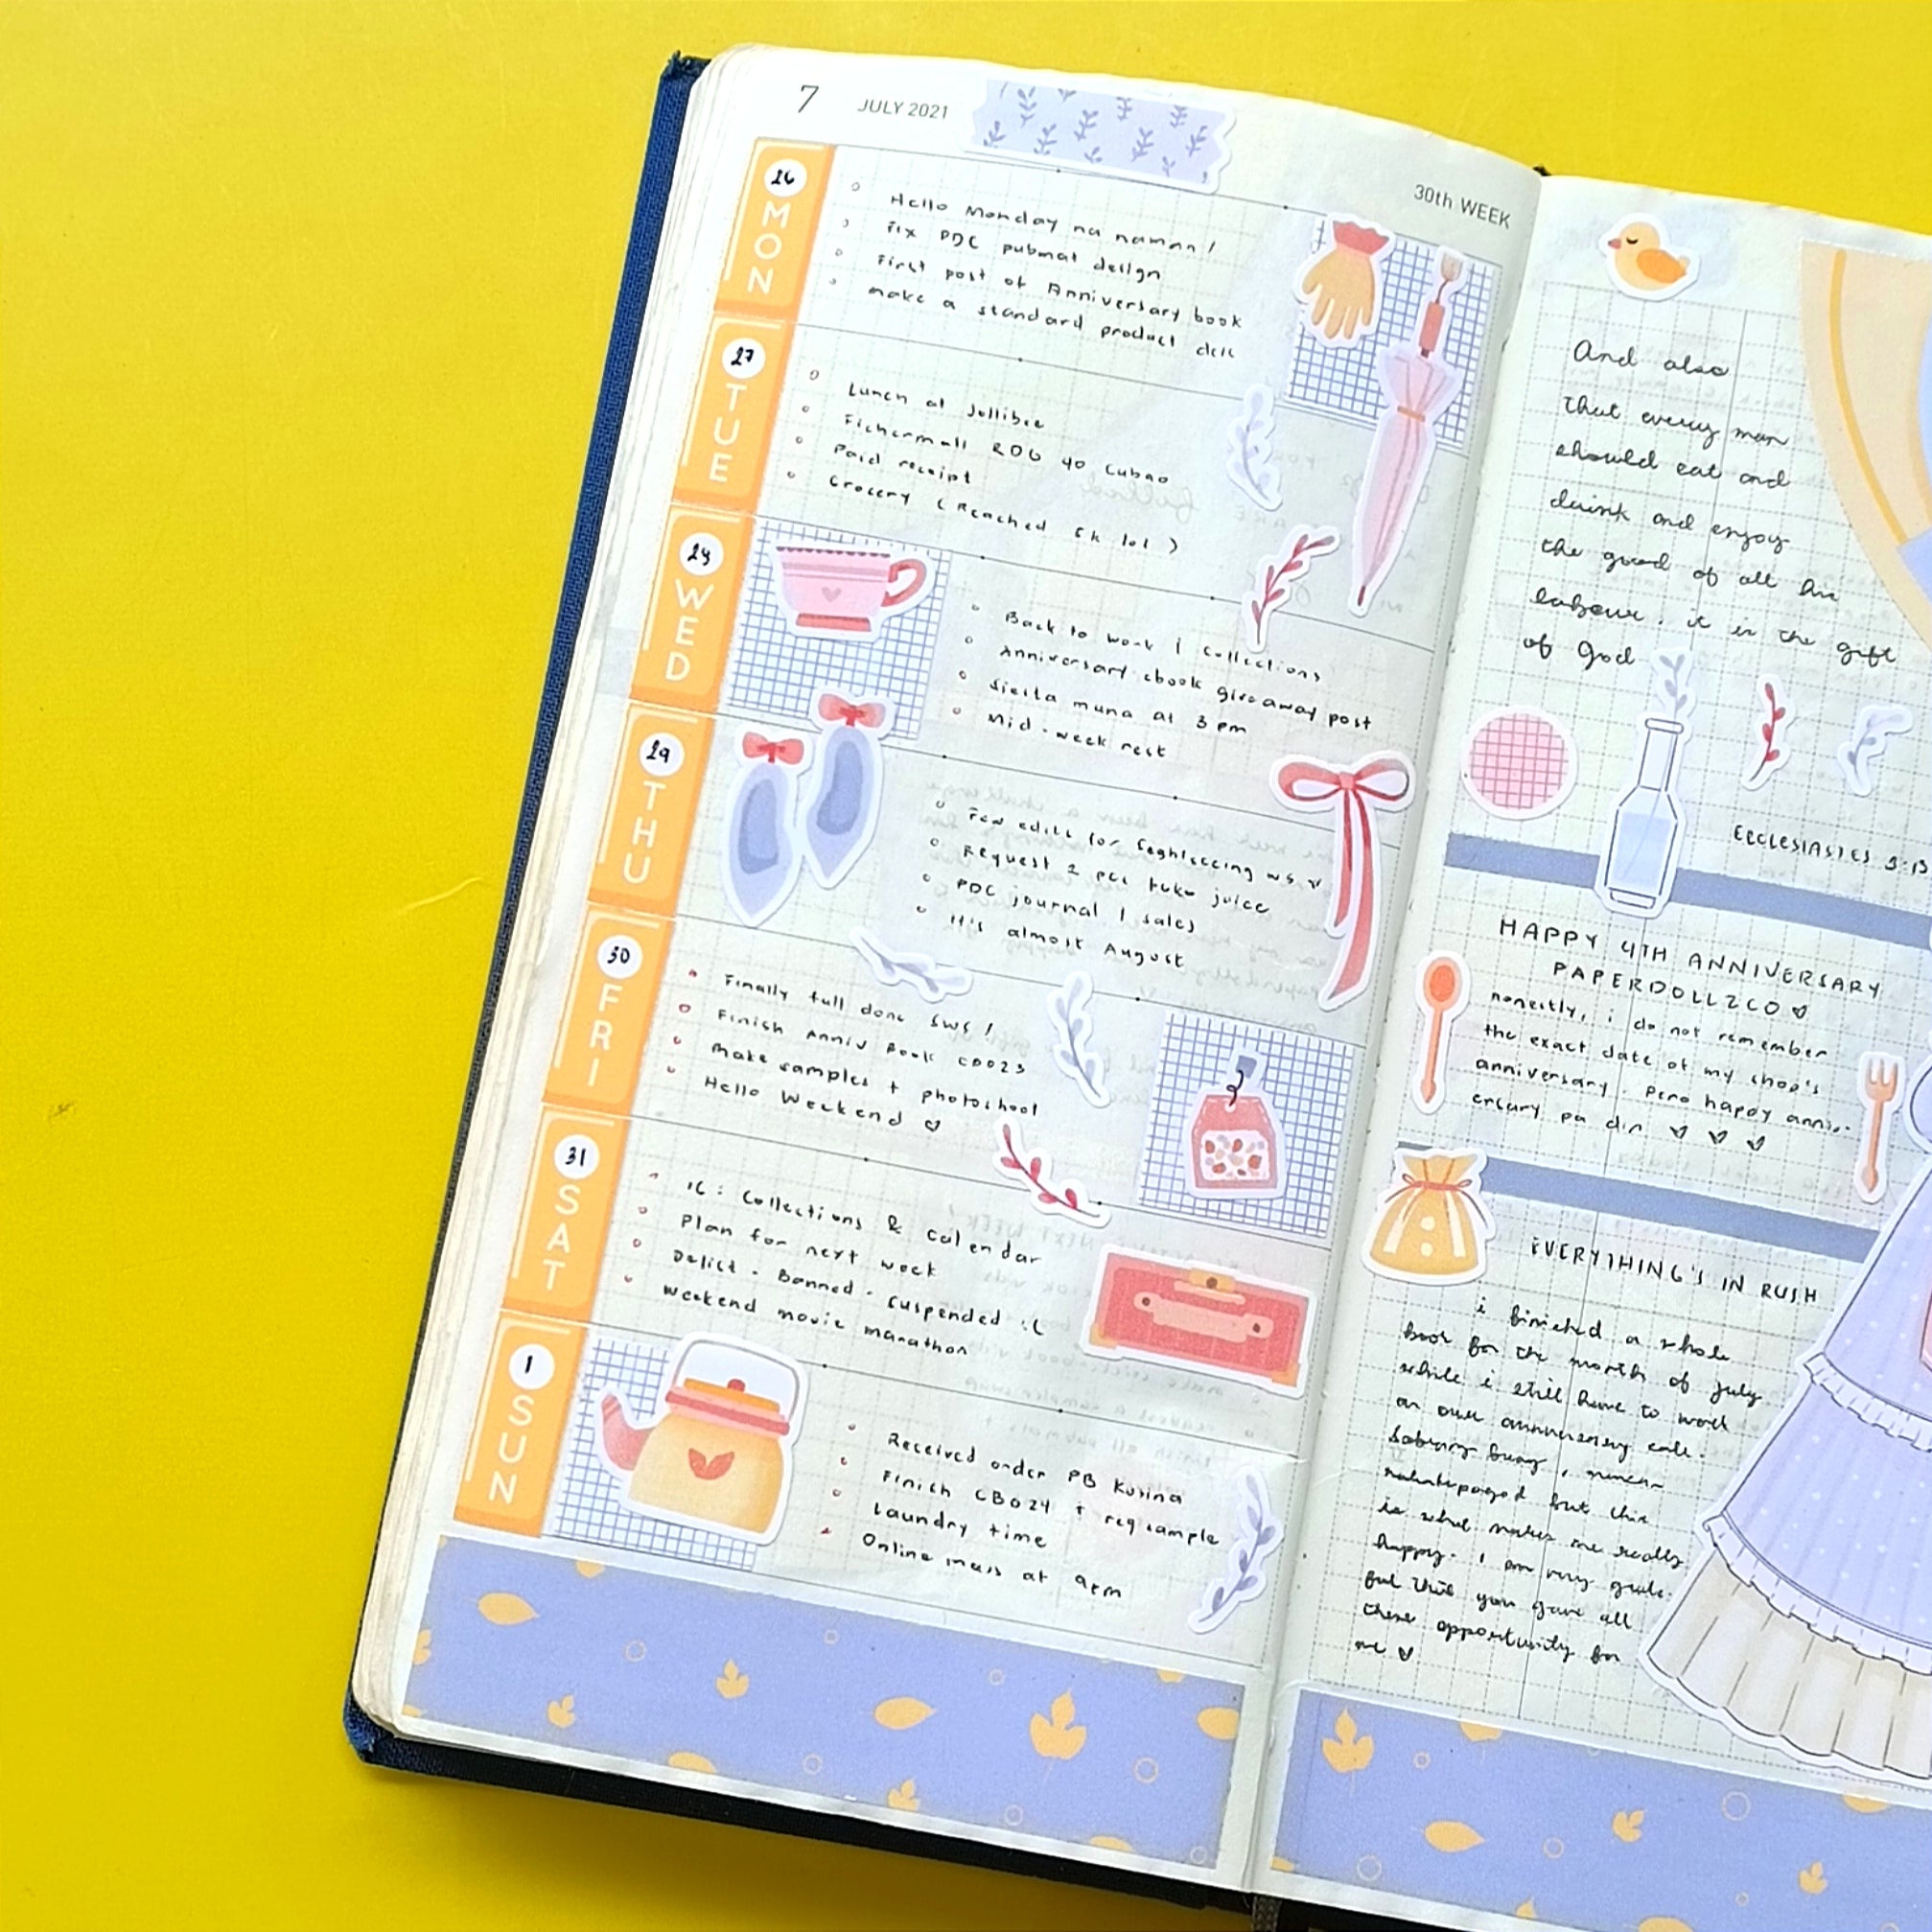 7 JULY 2021
30th WEEK
26 MON
Hello Monday na naman!
Fix PDC pubmat design
First post of Anniversary book
Make a standard product
27 TUE
Lunch at Jollibee
Fishermall to Cubao
Paid receipt
Grocery (Reached 5k lol)
28 WED
Back to work | collections
Anniversary ebook giveaway post
Siesta muna at 3 pm
Mid-week rest
29 THU
Few edits for
Request 2 pcs juice
PDC journal | sales
It's almost August
30 FRI
Finally full done SWS!
Finish Anniv Book CD023
Make samples + photoshoot
Hello Weekend ♡
31 SAT
IG: Collections & calendar
Plan for next week
Delist - Banned - suspended :(
Weekend movie marathon
1 SUN
Received order PB Kusina
Finish CB024 + reg sample
Laundry time
Online mass at 9pm
And also
that every man
should eat and
drink and enjoy
the good of all his
labour, it is the gift
of God
ECCLESIASTES 3:13
HAPPY 4TH ANNIVERSARY
PAPERDOLLZCO ♡
honestly, i do not remember
the exact date of my shop's
anniversary. Pero happy anniv-
ersary pa din ♡ ♡ ♡
EVERYTHING'S IN RUSH
i finished a whole
book for the month of July
while i still have to work
on our anniversary sale.
Sobrang busy,
but this
is what makes me really
happy. I am very grate-
ful that you gave all
these opportunity for
me ♡